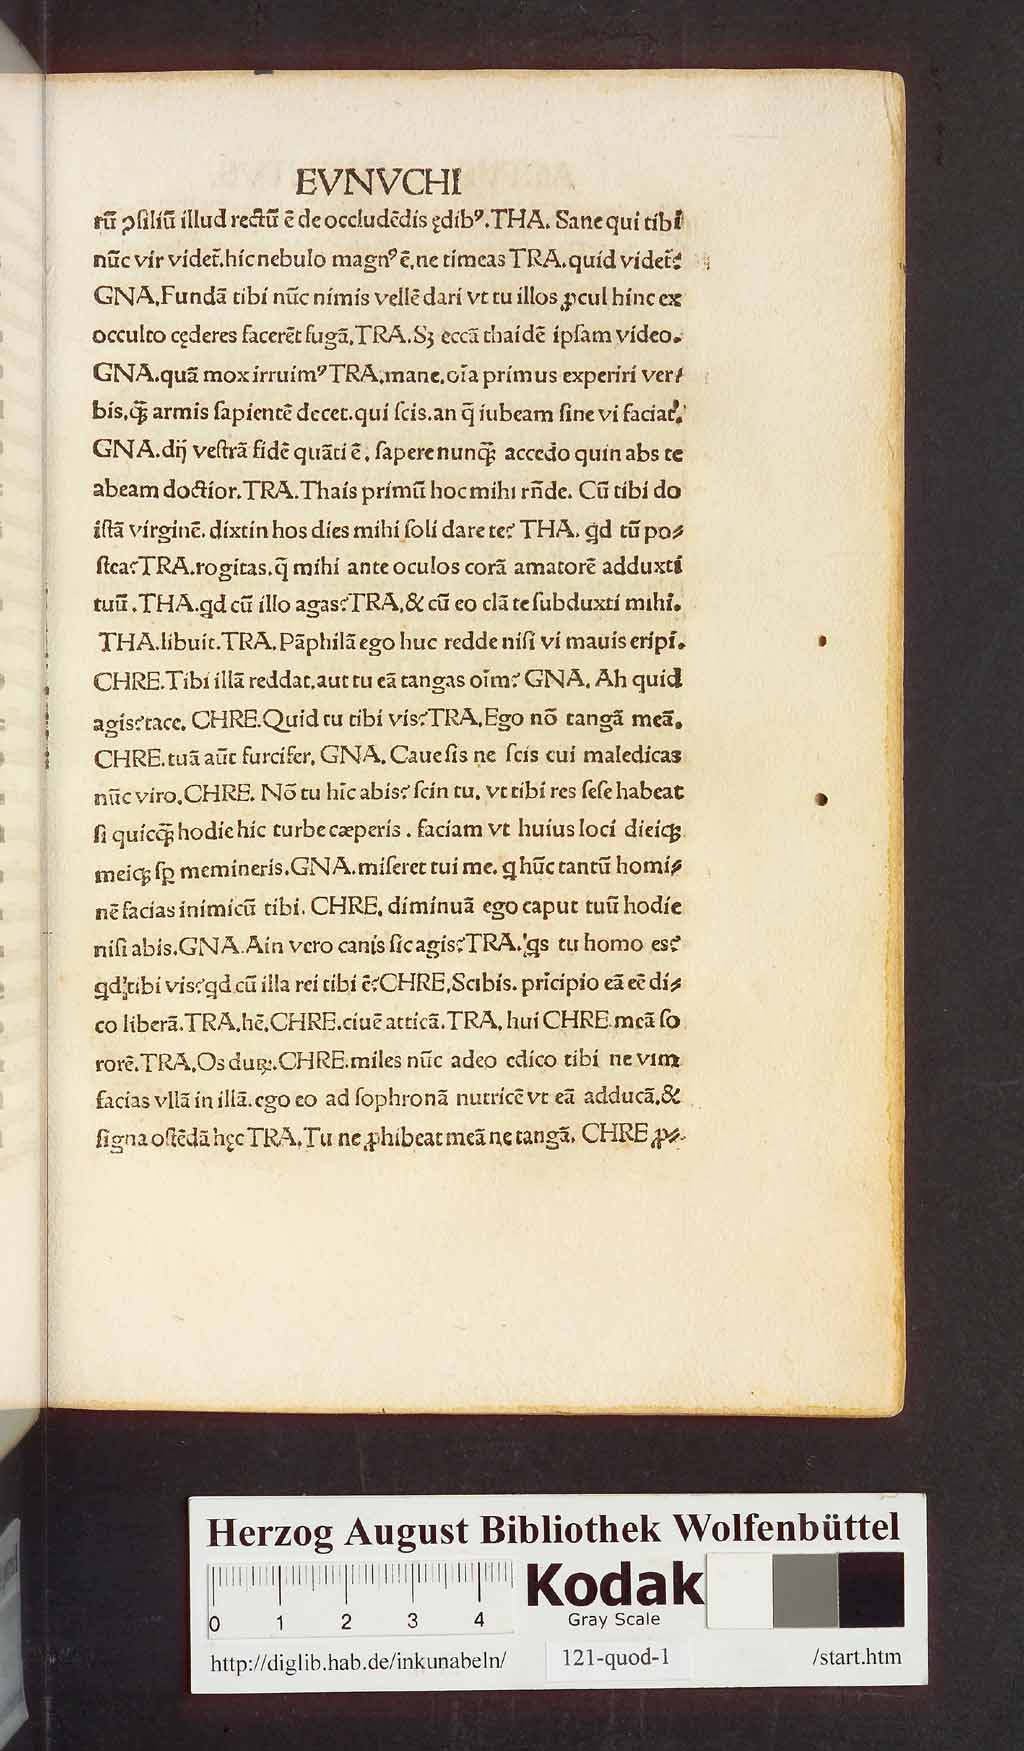 EVNVCHI
tū ꝯſiliū illud rectū ē de occludēdis ędibꝰ. THA. Sane qui tibi
nūc vir videt̄. hic nebulo magnꝰ ē, ne timeas TRA. quid videt̄?
GNA, Fundā tibi nūc nimis vellē dari vt tu illos ꝓcul hinc ex
occulto cęderes facerēt fugā, TRA. Sꝫ eccā thaidē ipſam video.
GNA. quā mox irruimꝰ TRA, mane. oīa primus experiri ver⸗
bis, ꝙ̄ armis ſapientē decet. qui ſcis. an q̄ iubeam ſine vi faciat.
GNA. dij veſtrā fidē quāti ē, ſapere nunꝙ̄ accedo quin abs te
abeam doctior, TRA. Thais primū hoc mihi rn̄de. Cū tibi do
iſtā virginē. dixtin hos dies mihi ſoli dare te? THA. qd tū po⸗
ſtea? TRA. rogitas. q̄ mihi ante oculos corā amatorē adduxti
tuū. THA. qd cū illo agas? TRA, & cū eo clā te ſubduxti mihi.
THA. libuit. TRA. Pāphilā ego huc redde niſi vi mauis eripi.
CHRE. Tibi illā reddat. aut tu eā tangas oīm? GNA. Ah quid
agis? tace. CHRE. Quid tu tibi vis? TRA, Ego nō tangā meā.
CHRE. tuā aūt furcifer, GNA. Caue ſis ne ſcis cui maledicas
nūc viro, CHRE. Nō tu hīc abis? ſcin tu, vt tibi res ſeſe habeat
ſi quicꝙ̄ hodie hic turbe cæperis. faciam vt huius loci dieiqꝫ
meiqꝫ ſꝑ memineris. GNA. miſeret tui me. q hūc tantū homi⸗
nē facias inimicū tibi. CHRE, diminuā ego caput tuū hodie
niſi abis. GNA. Ain vero canis ſic agis? TRA. qs tu homo es?
qd tibi vis? qd cū illa rei tibi ē? CHRE, Scibis. prīcipio eā eē di⸗
co liberā. TRA, hē, CHRE. ciuē atticā. TRA, hui CHRE. meā ſo
rorē. TRA, Os duꝝ. CHRE. miles nūc adeo edico tibi ne vim
facias vllā in illā. ego eo ad ſophronā nutricē vt eā adducā, &
ſigna oſtēdā hęc TRA, Tu ne ꝓhibeat meā ne tangā, CHRE ꝓ⸗
Herzog August Bibliothek Wolfenbüttel
0 1 2 3 4
Kodak
Gray Scale
http://diglib.hab.de/inkunabeln/ 121-quod-1 /start.htm